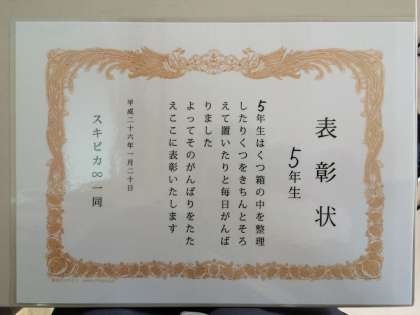 表彰状
5年生
5年生はくつ箱の中を整理
したりくつをきちんとそろ
えて置いたりと毎日がんば
りました
よってそのがんばりをたた
えここに表彰いたします
平成二十六年一月二十日
スキピカ∞一同